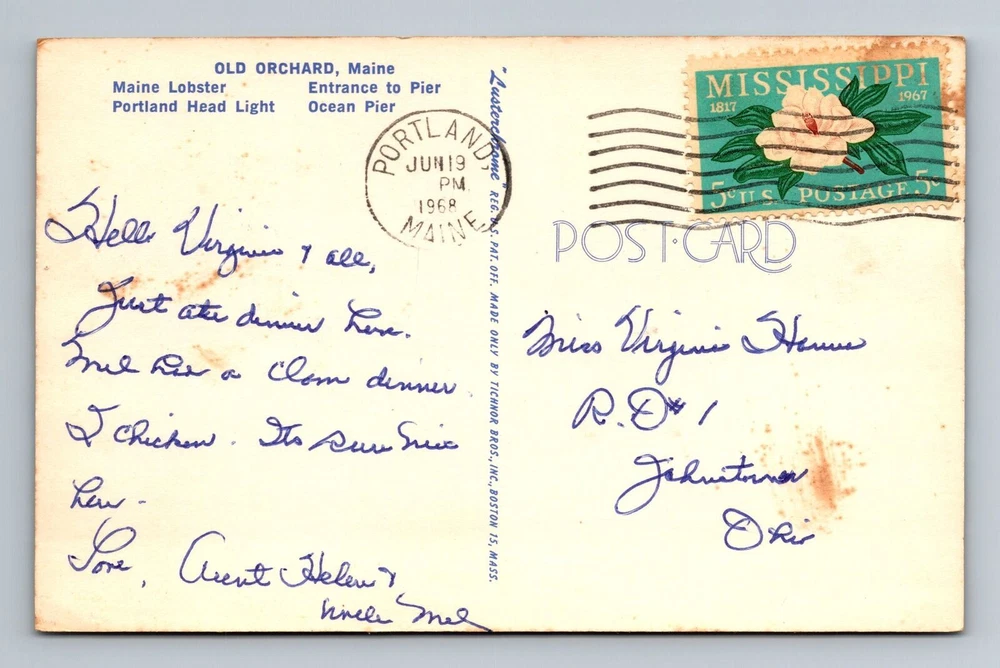 OLD ORCHARD, Maine
Maine Lobster Entrance to Pier
Portland Head Light Ocean Pier
"Lusterchrome" REG. U.S. PAT. OFF. MADE ONLY BY TICHNOR BROS., INC., BOSTON 15, MASS.
PORTLAND,
JUN 19
PM
1968
MAINE
MISSISSIPPI
1817 1967
5c U.S. POSTAGE 5c
POST·CARD
Hello Virginia & all,
Just ate dinner here.
Mel had a Clam dinner
I chicken. Its sure nice
here.
Love, Aunt Helen &
Uncle Mel
Miss Virginia
R.D #1
Johnstown
Ohio